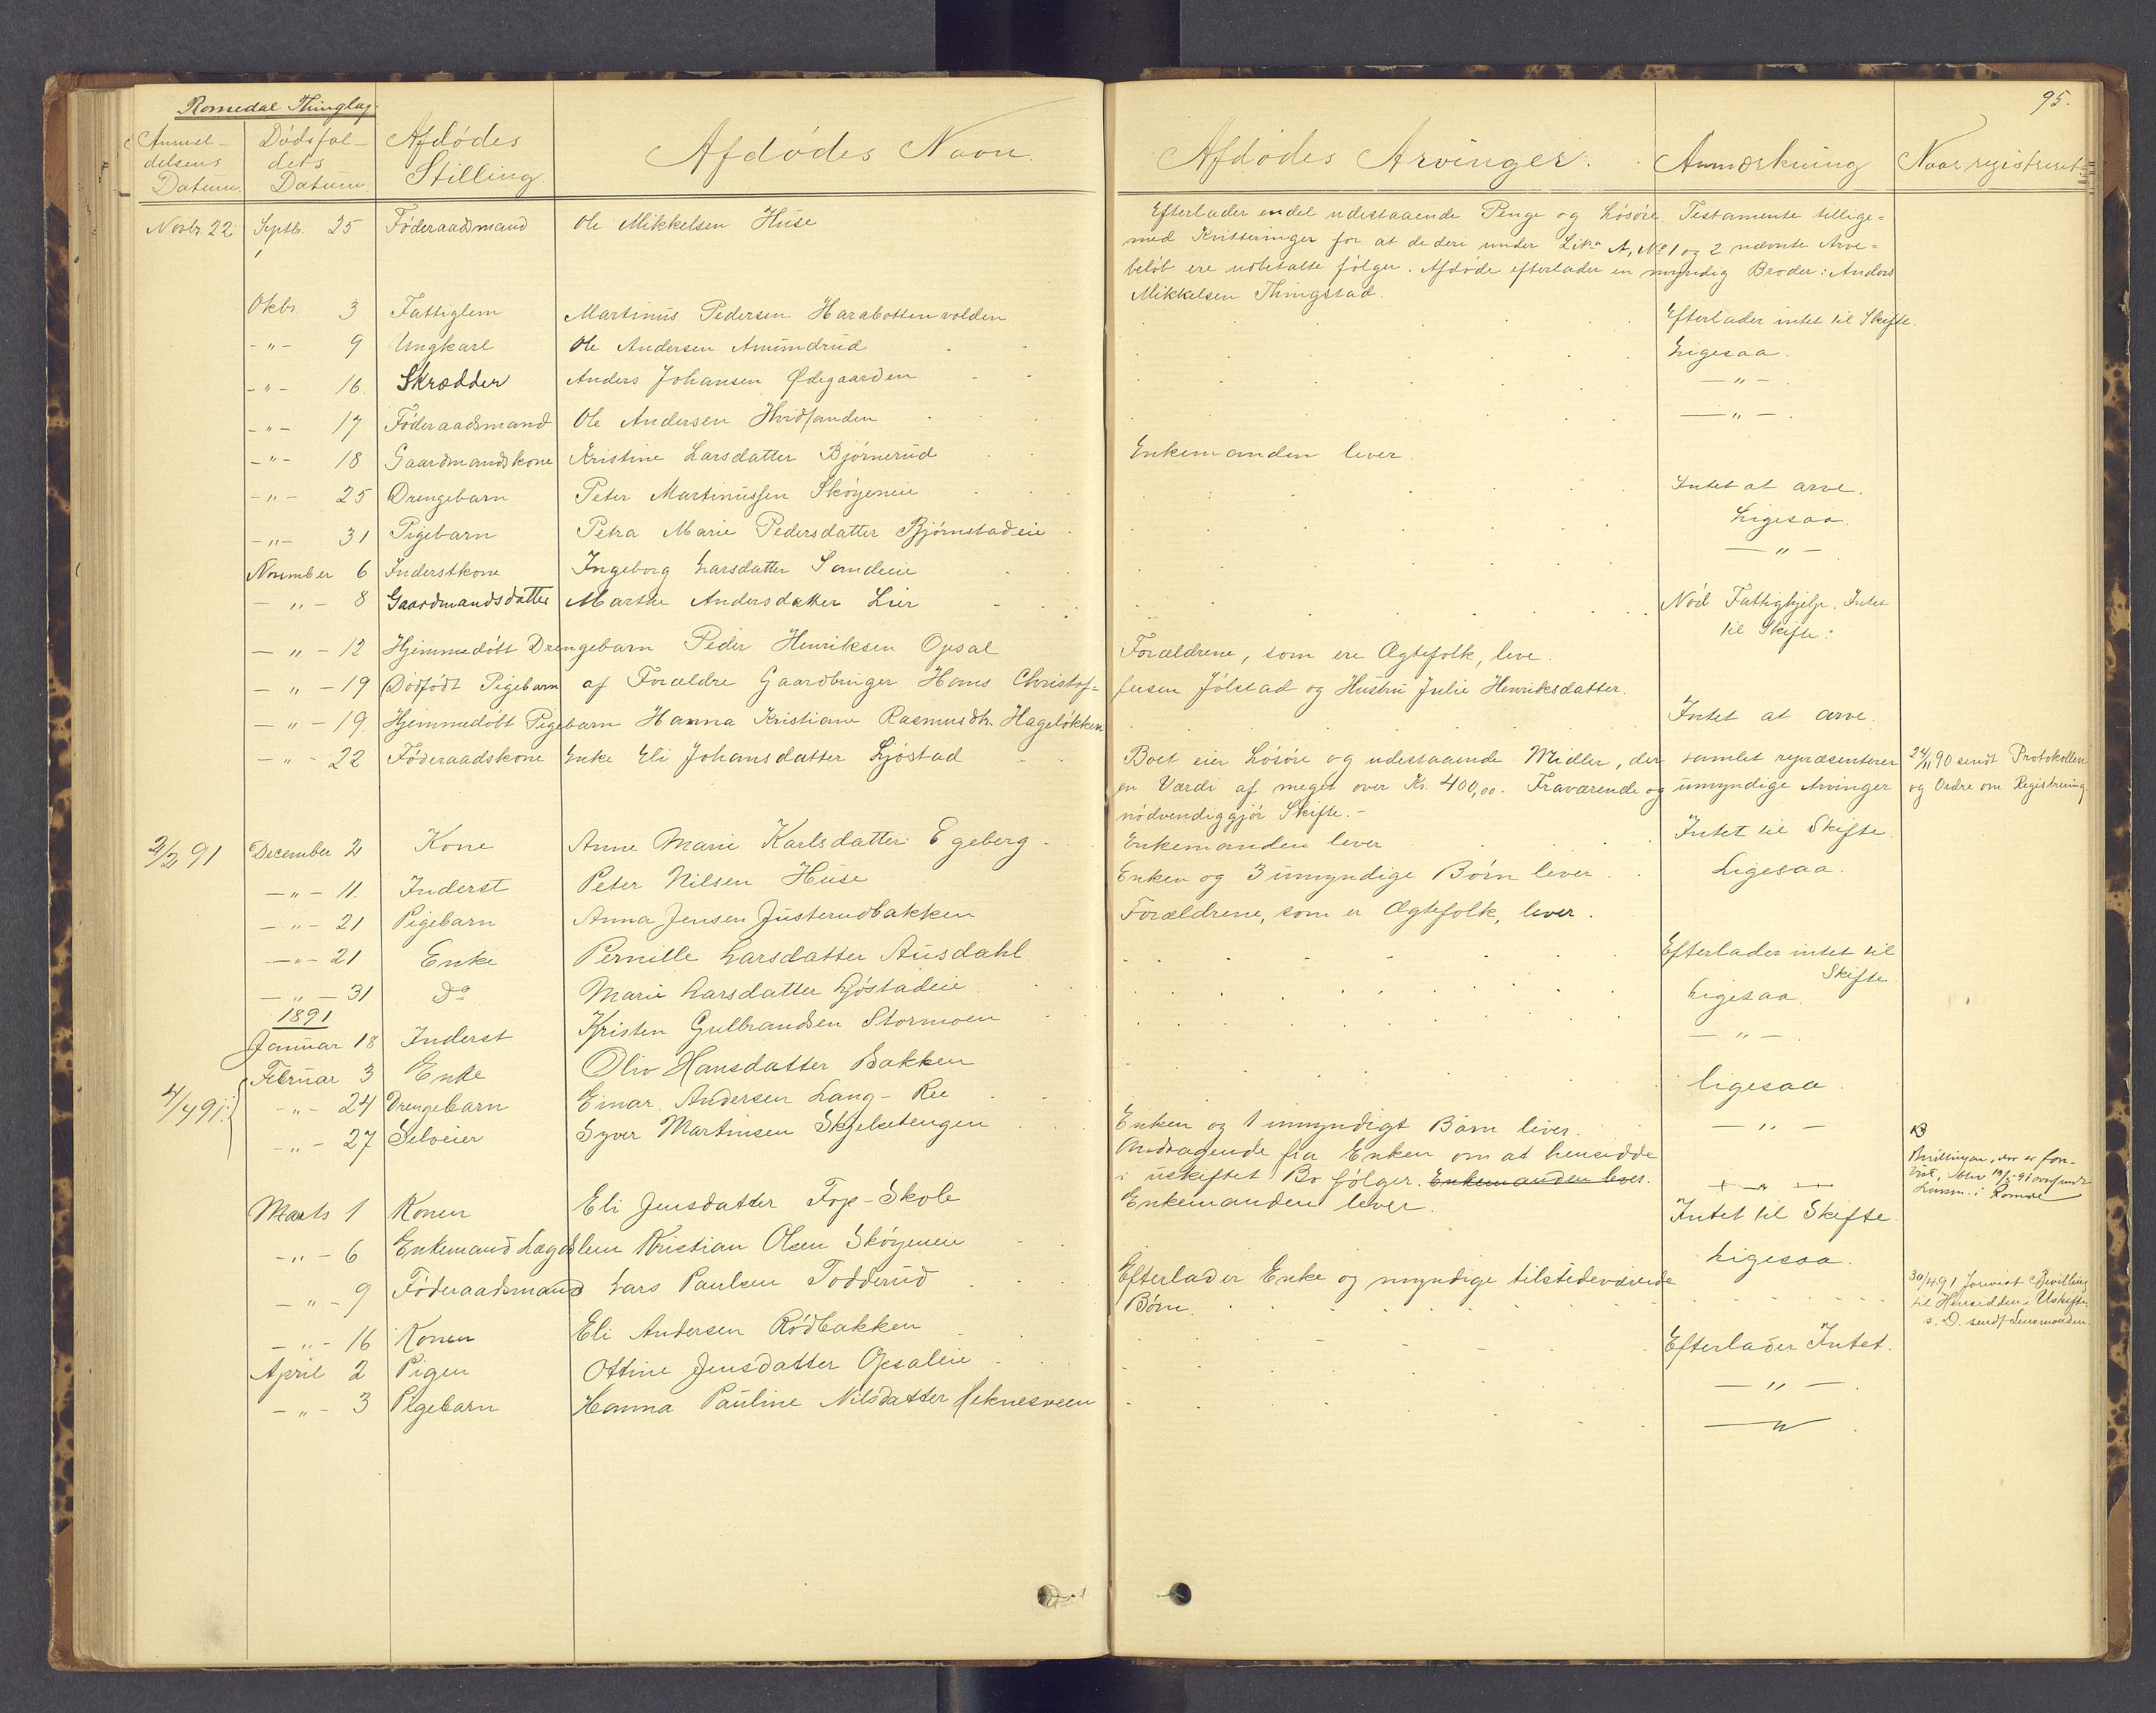 95.
Romedal Thinglag.
Anmel-delsens Datum. Dødsfal-dets Datum Afdødes Stilling Afdødes Navn. Afdødes Arvinger. Anmærkning Naar registreret.
Novbr. 22 Septbr. 25 Føderaadsmand Ole Mikkelsen Huse Efterlader endel udestaaende Penge og Løsøre. Testamente tillige=
med Kvitteringer for at de deri under Litr. A, No 1 og 2 nævnte Arve=
beløb ere udbetalte følger. Afdøde efterlader en myndig Broder: Anders
Mikkelsen Thingstad.
Okbr. 3 Fattiglem Martinus Pedersen Harabottenvolden Efterlader intet til Skifte.
-"- 9 Ungkarl Ole Andersen Amundrud Ligesaa.
-"- 16. Skrædder Anders Johansen Ødegaarden -"-.
-"- 17 Føderaadsmand Ole Andersen Hvidsanden -"-.
-"- 18 Gaardmandskone Kristine Larsdatter Bjørnerud Enkemanden lever.
-"- 25 Drengebarn Peter Martinussen Skøyeneie Intet at arve.
-"- 31 Pigebarn Petra Marie Pedersdatter Bjørnstadeie Ligesaa.
November 6 Inderstkone Ingeborg Larsdatter Sandeie -"-
-"- 8 Gaardmandsdatter Marthe Andersdatter Lier Nød Fattighjelp. Intet
til Skifte.
-"- 12 Hjemmedøbt Drengebarn Peder Henriksen Opsal Forældrene, som ere Ægtefolk, leve.
-"- 19 Dødfødt Pigebarn af Forældre Gaardbruger Hans Christof=fersen Jølstad og Hustru Julie Henriksdatter.
-"- 19 Hjemmedøbt Pigebarn Hanna Kristiane Rasmusdtr. Hageløkken Intet at arve.
-"- 22 Føderaadskone Enke Eli Johansdatter Ljøstad Boet eier Løsøre og udestaaende Midler, der samlet repræsenterer 24/11 90 sendt Protokollen
en Værdi af meget over Kr. 400,00. Fraværende og umyndige Arvinger og Ordre om Registrering.
nødvendiggjør Skifte.-
2/2 91 December 2 Kone Anne Marie Karlsdatter Egeberg Enkemanden lever Intet til Skifte.
-"- 11. Inderst Peter Nilsen Huse Enken og 3 umyndige Børn lever. Ligesaa.
-"- 21 Pigebarn Anna Jensen Justerudbakken Forældrene, som er Ægtefolk, lever.
-"- 21 Enke Pernille Larsdatter Ausdahl Efterlader intet til
Skifte.
-"- 31 do Marie Larsdatter Ljøstadeie Ligesaa.
1891
Januar 18 Inderst Kristen Gulbrandsen Stormoen -"-.
Februar 3 Enke Oliv Hansdatter Bakken ligesaa.
4/4 91. -"- 24 Drengebarn Einar Andersen Lang-Ree -"-
-"- 27 Selveier Syver Martinsen Skjelsetengen Enken og 1 umyndigt Barn lever.
Andragende fra Enken om at hensidde
i uskiftet Bo følger. Enkemanden lever.
Marts 1 Konen Eli Jensdatter Fop-Skole Enkemanden lever. Intet til Skifte.
-"- 6 Enkemand Lægdslem Kristian Olsen Skøyeneie Ligesaa.
-"- 9 Føderaadsmand Lars Paulsen Todderud Efterlader Enke og myndige tilstedeværende 30/4 91 Bevilling
Børn. til Hensidden i Uskifte
-"- 16 Konen Eli Andersen Rødbakken Efterlader Intet.
April 2 Pigen Ottine Jensdatter Opsaleie -"-.
-"- 3 Pigebarn Hanna Pauline Nilsdatter Heknesveen -"-